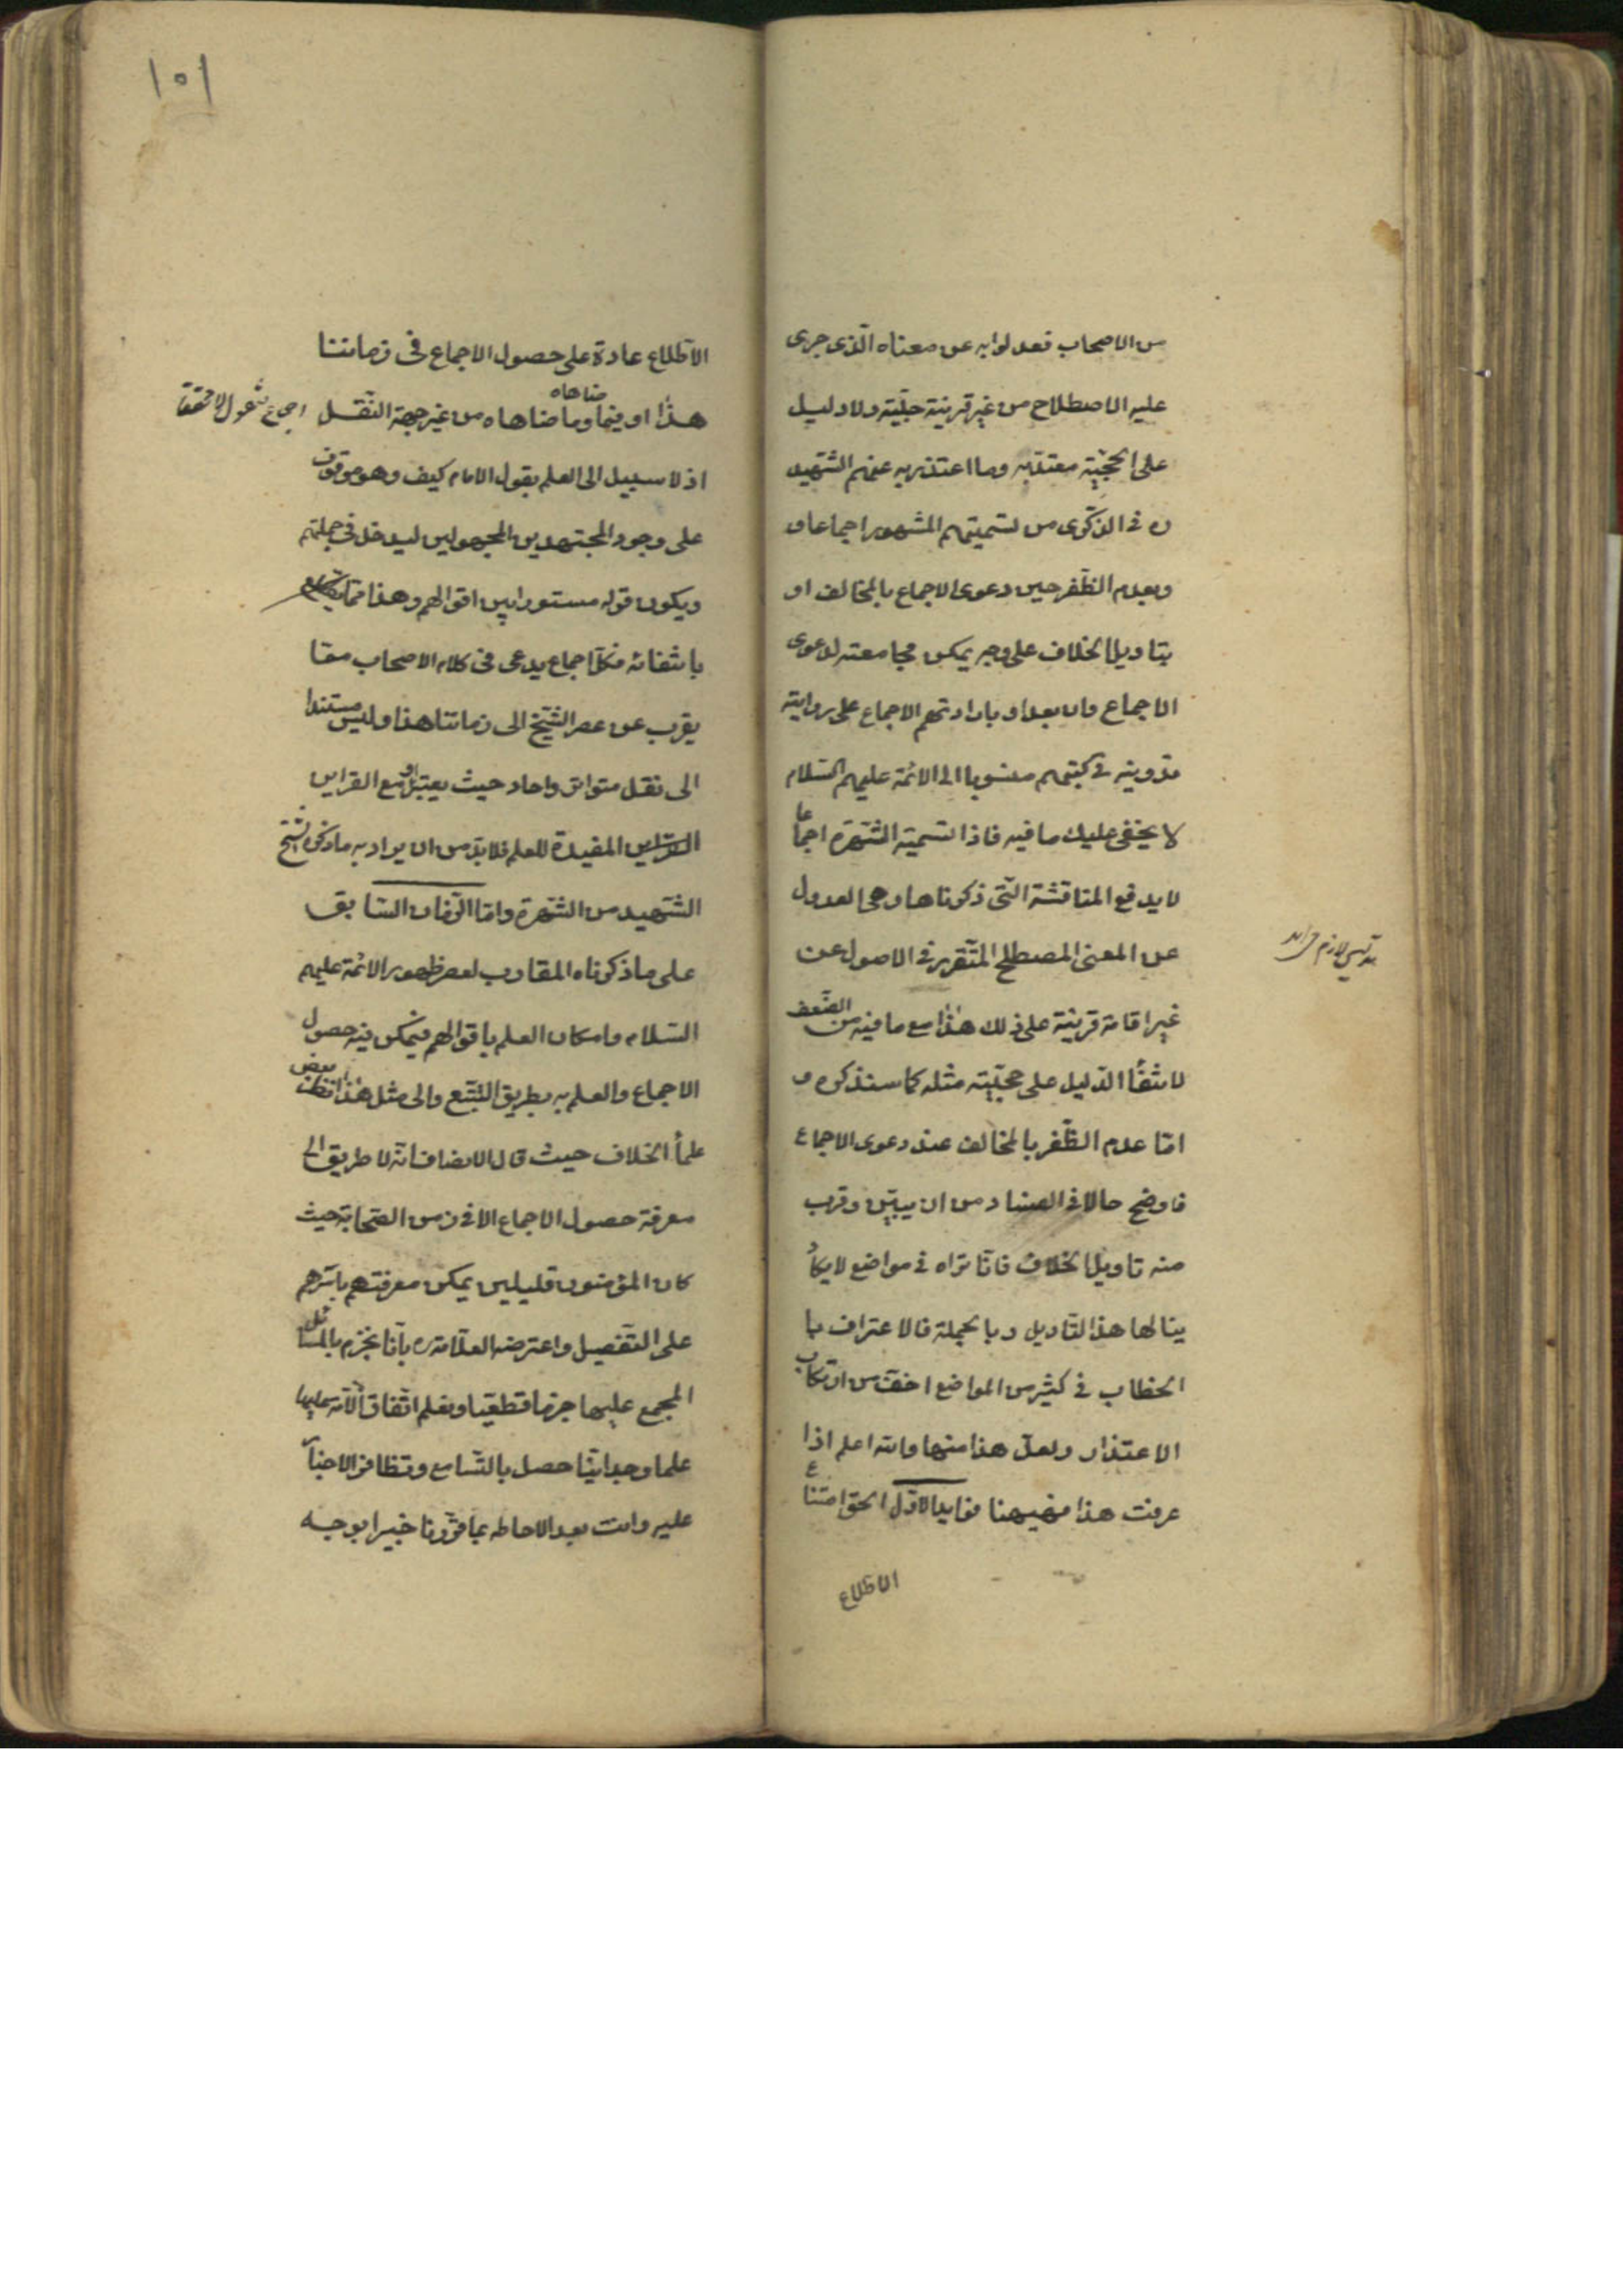 من الاصحاب فعدلوا به عن معناه الّذى جرى
عليه الاصطلاح من غير قرينة جليّة ولا دليل
على الحجّيّة معتدّ به وما اعتذر به عنهم الشّهيد
ره فى الذّكرى من تسميتهم المشهور اجماعا و
وبعدم الظّفر حين دعوى الاجماع بالمخالف او
بتاويل الخلاف على وجه يمكن مجامعته لدعوى
الاجماع وان بعد او بارادتهم الاجماع على رواية
تدوينه فى كتبهم منسوبا الى الائمّة عليهم السّلام
لا يخفى عليك ما فيه فاذا تسمية الشّهرة اجماعا
لا يدفع المناقشة الّتى ذكرناها وهى العدول
عن المعنى المصطلح المتّقرر فى الاصول عن
غير اقامة قرينة على ذلك هذا مع ما فيه من الضّعف
لانتفاء الدّليل على حجّيّة مثله كما سنذكره و
امّا عدم الظّفر بالمخالف عند دعوى الاجماع
فاوضح حالا فى الفساد من ان يبيّن وقرب
منه تاويل الخلاف فانّا نراه فى مواضع لا يكاد
ينالها هذا التّاويل وبالجملة فالاعتراف با
الخطاب فى كثير من المواضع اخفّ من ارتكاب
الاعتذار ولعلّ هذا منها والله اعلم اذا
عرفت هذا فهيهنا فوايد الاوّل الحق امتناع
الاطّلاع
١٥١
الاطّلاع عادة على حصول الاجماع فى زماننا
هذا او فيما وما ضاهاه من غير جهة النّقل
ضاهاه
اذ لا سبيل الى العلم بقول الامام كيف وهو موقوف
على وجود المجتهدين المجهولين ليدخل فى جملتهم
ويكون قوله مستورا بين اقوالهم وهذا ممّا يقطع
بانتفائه فكلّ اجماع يدعى فى كلام الاصحاب ممّا
يقرب عن عصر الشّيخ الى زماننا هذا وليس مستندا
الى نقل متواتر واحاد حيث يعتبر او مع القراين
القراين المفيدة للعلم فلا بدّ من ان يراد به ما ذكره الشيخ
الشّهيد من الشّهرة وامّا الزّمان السّابق
على ما ذكرناه المقارب لعصر ظهور الائمّة عليهم
السّلام وامكان العلم باقوالهم فيمكن فيه حصول
الاجماع والعلم به بطريق التّتبّع والى مثل هذا نظر بعض
علماء الخلاف حيث قال الانصاف انّه لا طريق الى
معرفة حصول الاجماع الا فى زمن الصّحابة حيث
كان المؤمنون قليلين يمكن معرفتهم باسرهم
على التّفصيل واعترضه العلّامة ره بانّا نجزم بالمسائل
المجمع عليها جزما قطعيّا ونعلم اتّفاق الامّة عليها
علما وجدانيّا حصل بالتّسامع وتظافر الاخبار
عليه وانت بعد الاحاطه بما قرّرنا خبير ابوجه